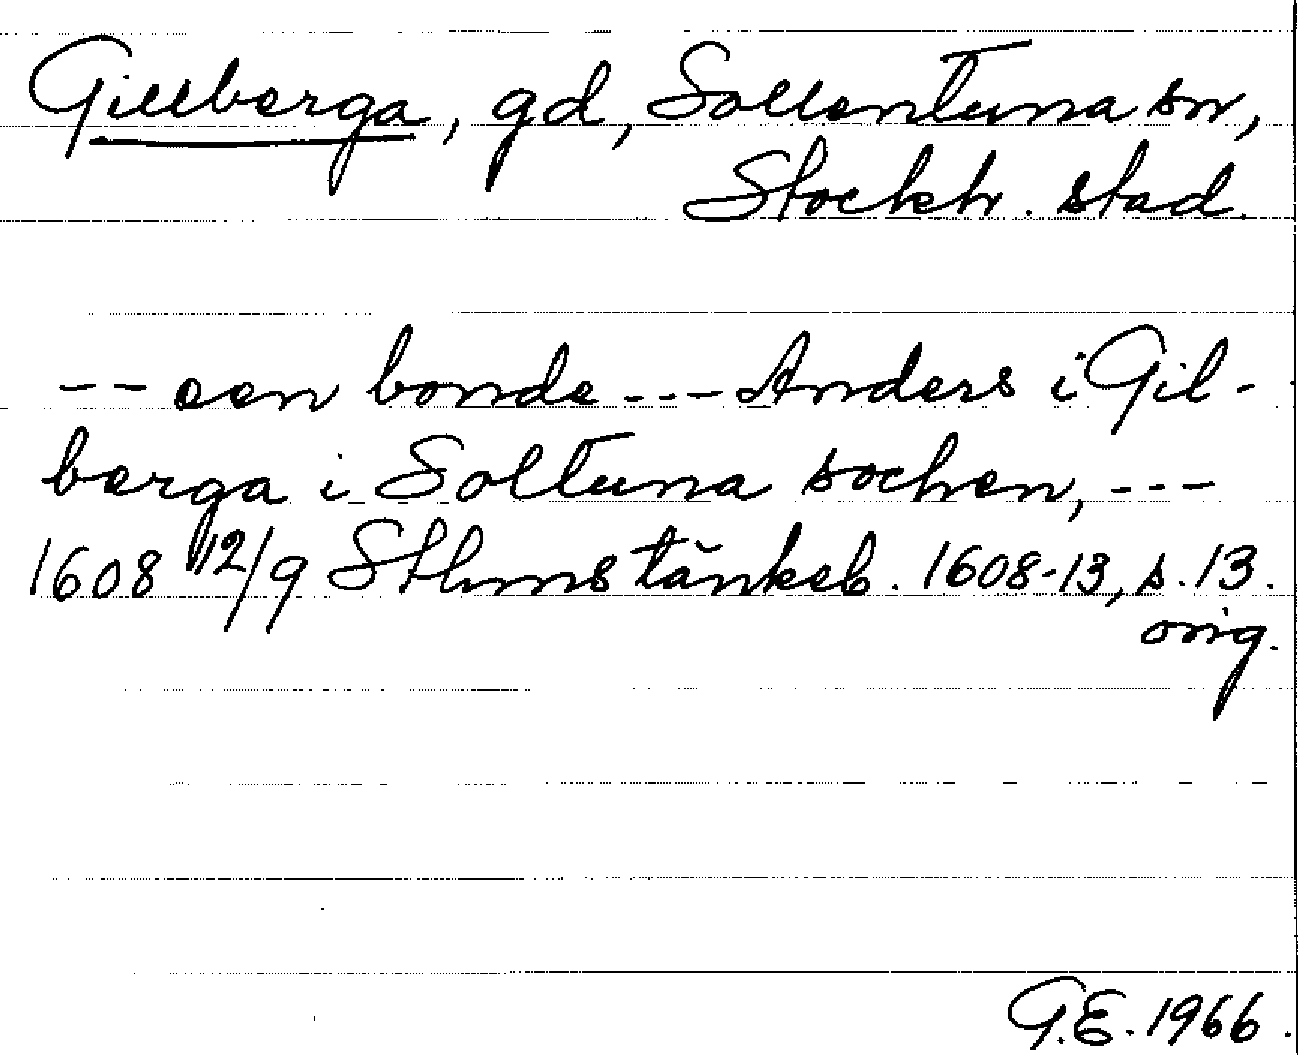 Gillberga, gd, Sollentuna sn,
Stockh. stad.
-- een bonde --- Anders i Gil-
berga i Soltuna sochen, ---
1608 12/9 Sthms tänkeb. 1608-13, s. 13.
orig.
G.E. 1966.